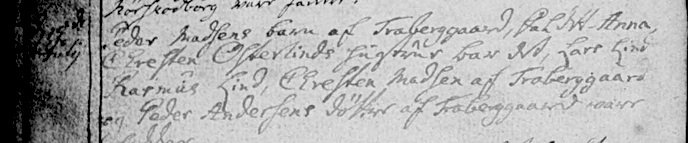 Peder Madsens barn af Traberggaard, kaldet Anna,
Chresten Østerlinds hustrue bar det, Lars Lind
Rasmus Lind, Chresten Madsen af Traberggaard
og Peder Andersens døtter af Traberggaard vare